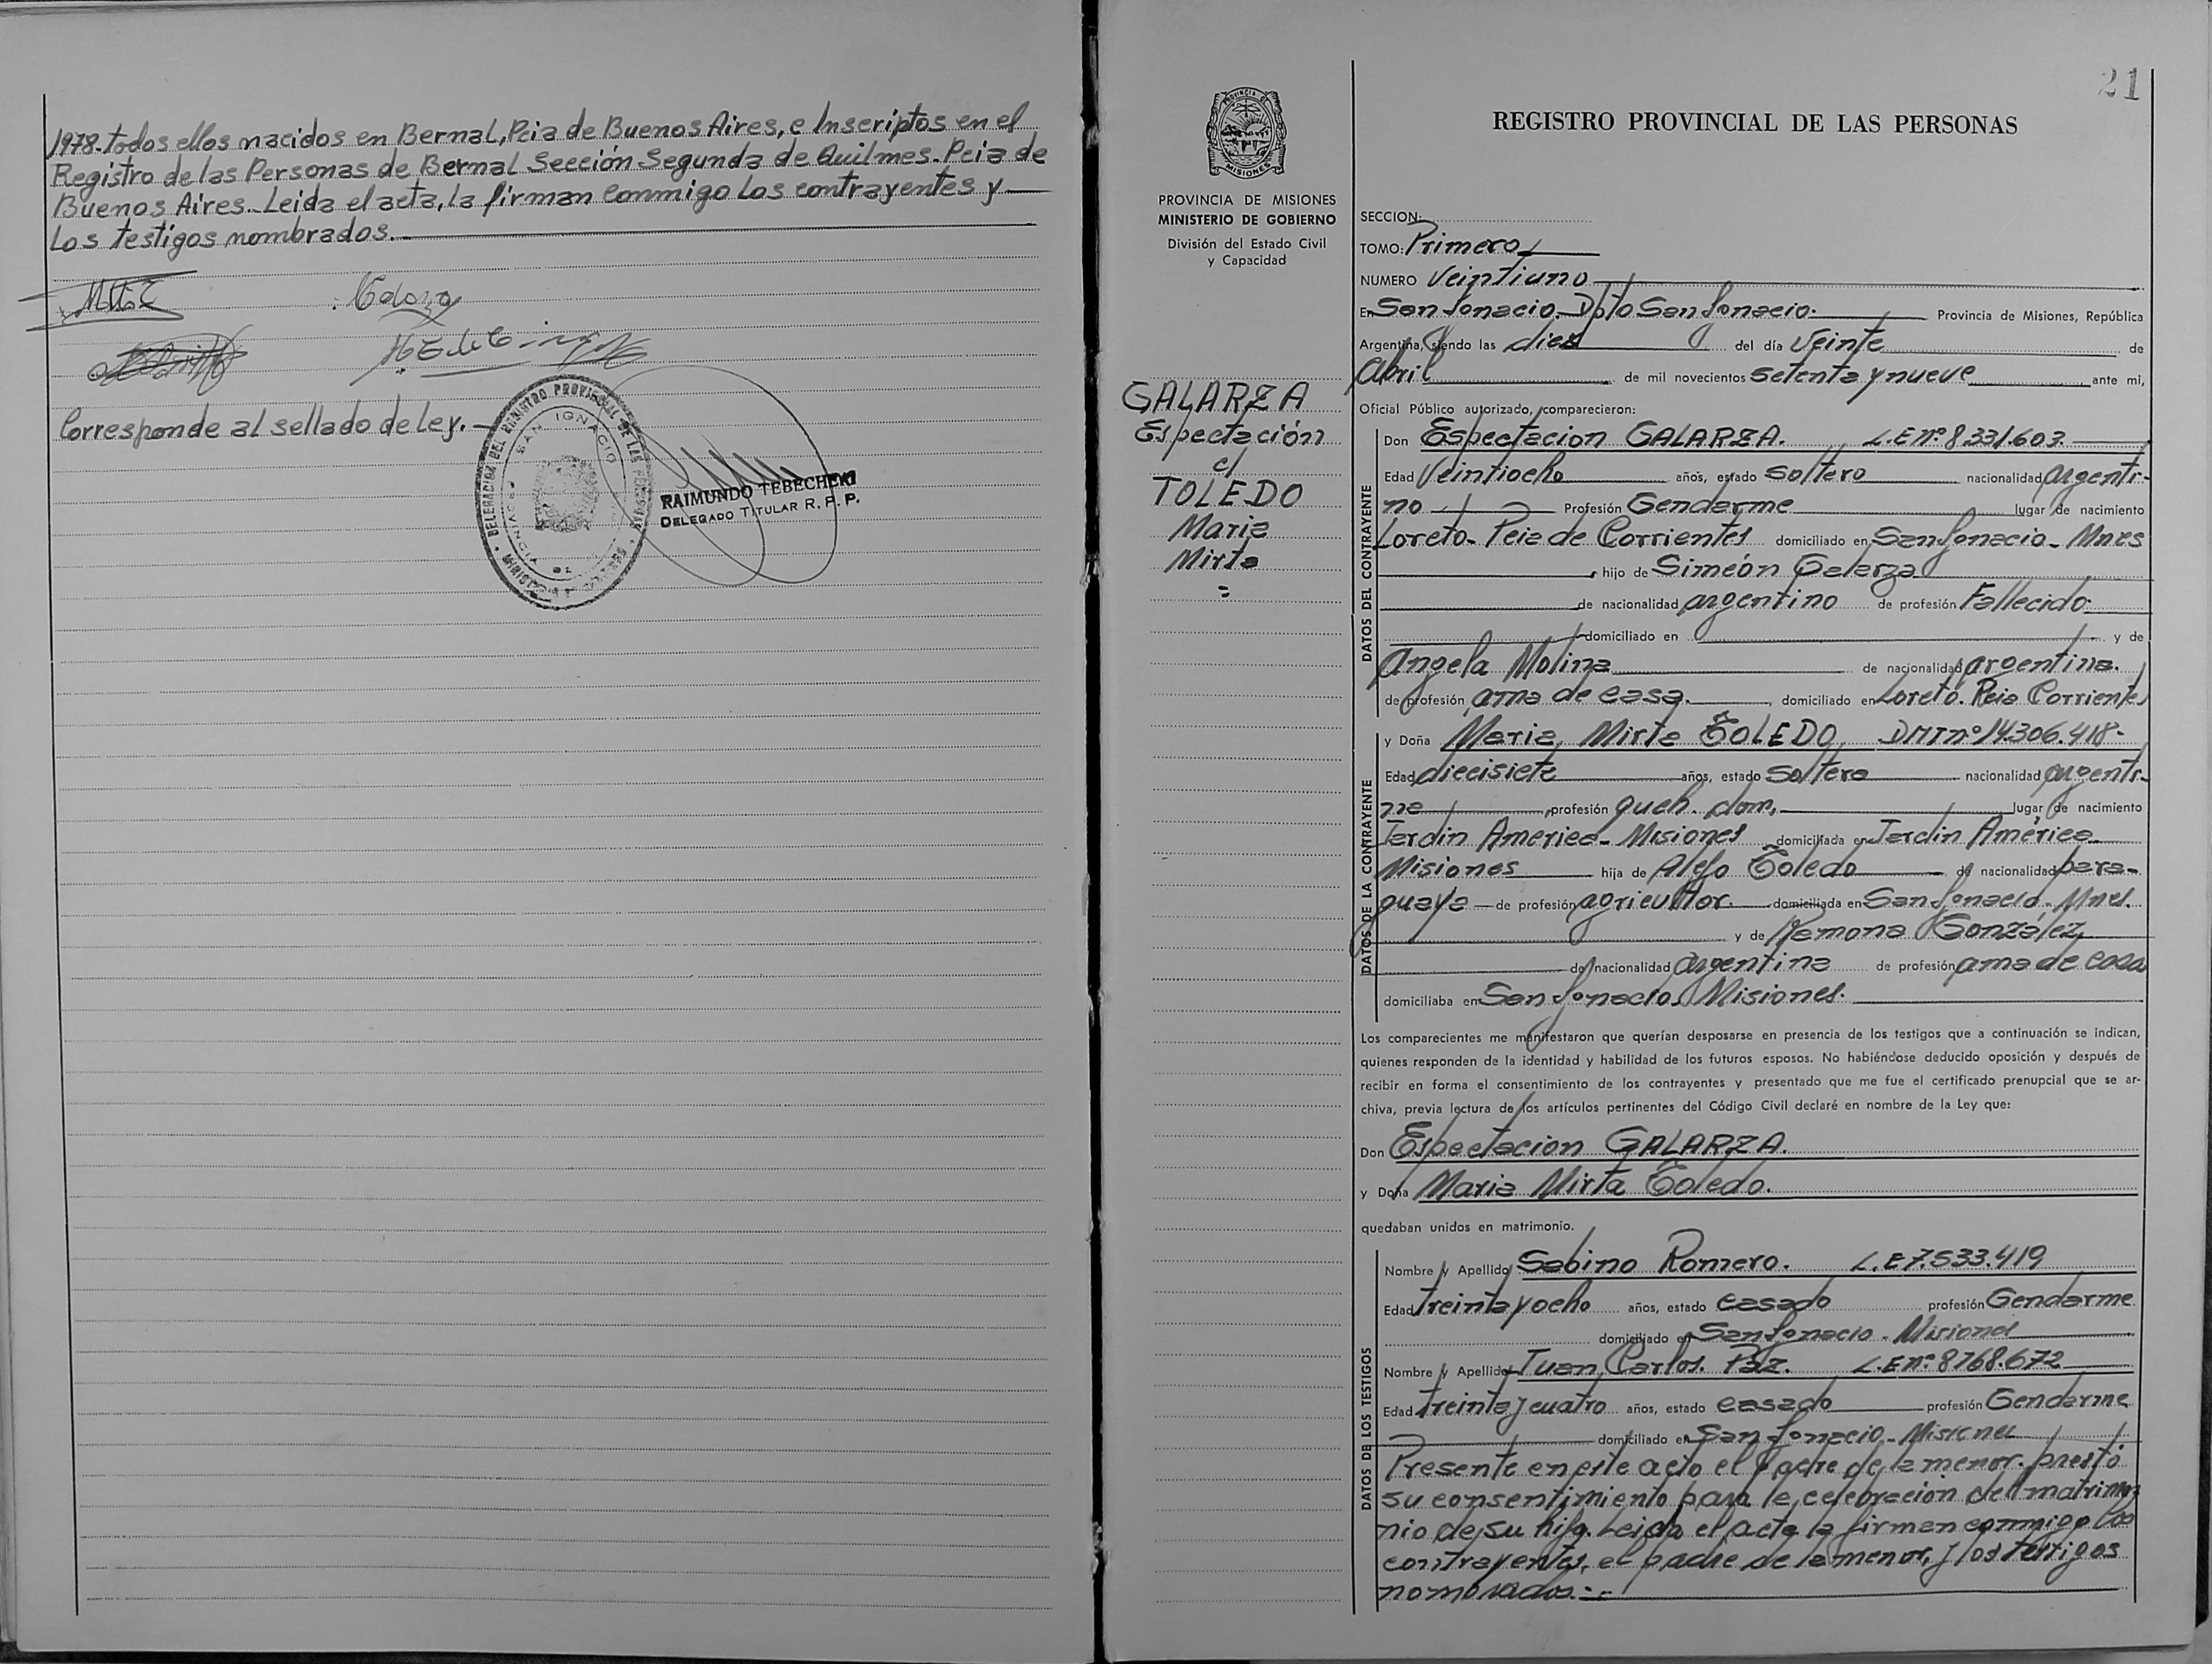 1978. todos ellos nacidos en Bernal, Pcia de Buenos Aires, e Inscriptos en el
Registro de las Personas de Bernal Sección Segunda de Quilmes. Pcia de
Buenos Aires. Leida el acta, la firman conmigo los contrayentes y
los testigos nombrados.
Corresponde al sellado de ley.
DELEGACION DEL REGISTRO PROVINCIAL DE LAS PERSONAS
SAN IGNACIO
MISIONES
RAIMUNDO TEBECHERI
DELEGADO TITULAR R. P. P.
21
PROVINCIA DE
MISIONES
PROVINCIA DE MISIONES
MINISTERIO DE GOBIERNO
División del Estado Civil
y Capacidad
GALARZA
Espectación
c/
TOLEDO
Maria
Mirta
=
REGISTRO PROVINCIAL DE LAS PERSONAS
SECCION:
TOMO: Primero
NUMERO Veintiuno
En San Ignacio. Dpto San Ignacio. Provincia de Misiones, República
Argentina, siendo las diez del día Veinte de
Abril de mil novecientos setenta y nueve ante mi,
Oficial Público autorizado, comparecieron:
DATOS DEL CONTRAYENTE
Don Espectacion GALARZA. L.E nº 8.331.603.
Edad Veintiocho años, estado soltero nacionalidad argenti-
no Profesión Gendarme lugar de nacimiento
Loreto. Pcia de Corrientes domiciliado en San Ignacio. Mnes
hijo de Simeón Galarza
de nacionalidad argentino de profesión Fallecido
domiciliado en y de
Angela Molina de nacionalidad argentina.
de profesión ama de casa. domiciliado en Loreto. Pcia Corrientes
DATOS DE LA CONTRAYENTE
y Doña Maria Mirta TOLEDO DNI nº 14.306.418-
Edad diecisiete años, estado soltera nacionalidad argenti-
na profesión queh. dom. lugar de nacimiento
Jardin America - Misiones domiciliada en Jardin América
Misiones hija de Alejo Toledo de nacionalidad para-
guaya de profesión agricultor. domiciliada en San Ignacio. Mnes.
y de Ramona González
de nacionalidad argentina de profesión ama de casa
domiciliaba en San Ignacio. Misiones.
Los comparecientes me manifestaron que querían desposarse en presencia de los testigos que a continuación se indican,
quienes responden de la identidad y habilidad de los futuros esposos. No habiéndose deducido oposición y después de
recibir en forma el consentimiento de los contrayentes y presentado que me fue el certificado prenupcial que se ar-
chiva, previa lectura de los artículos pertinentes del Código Civil declaré en nombre de la Ley que:
Don Espectacion GALARZA.
y Doña Maria Mirta Toledo.
quedaban unidos en matrimonio.
DATOS DE LOS TESTIGOS
Nombre y Apellido Sabino Romero. L.E 7.533.419
Edad treinta y ocho años, estado casado profesión Gendarme
domiciliado en San Ignacio - Misiones
Nombre y Apellido Juan Carlos Paz. L.E nº 8768.672
Edad treinta y cuatro años, estado casado profesión Gendarme
domiciliado en San Ignacio - Misiones
Presente en este acto el Padre de la menor. prestó
su consentimiento para la celebración del matrimo
nio de su hija. Leida el acta la firman conmigo los
contrayentes, el padre de la menor, y los testigos
nombrados.=